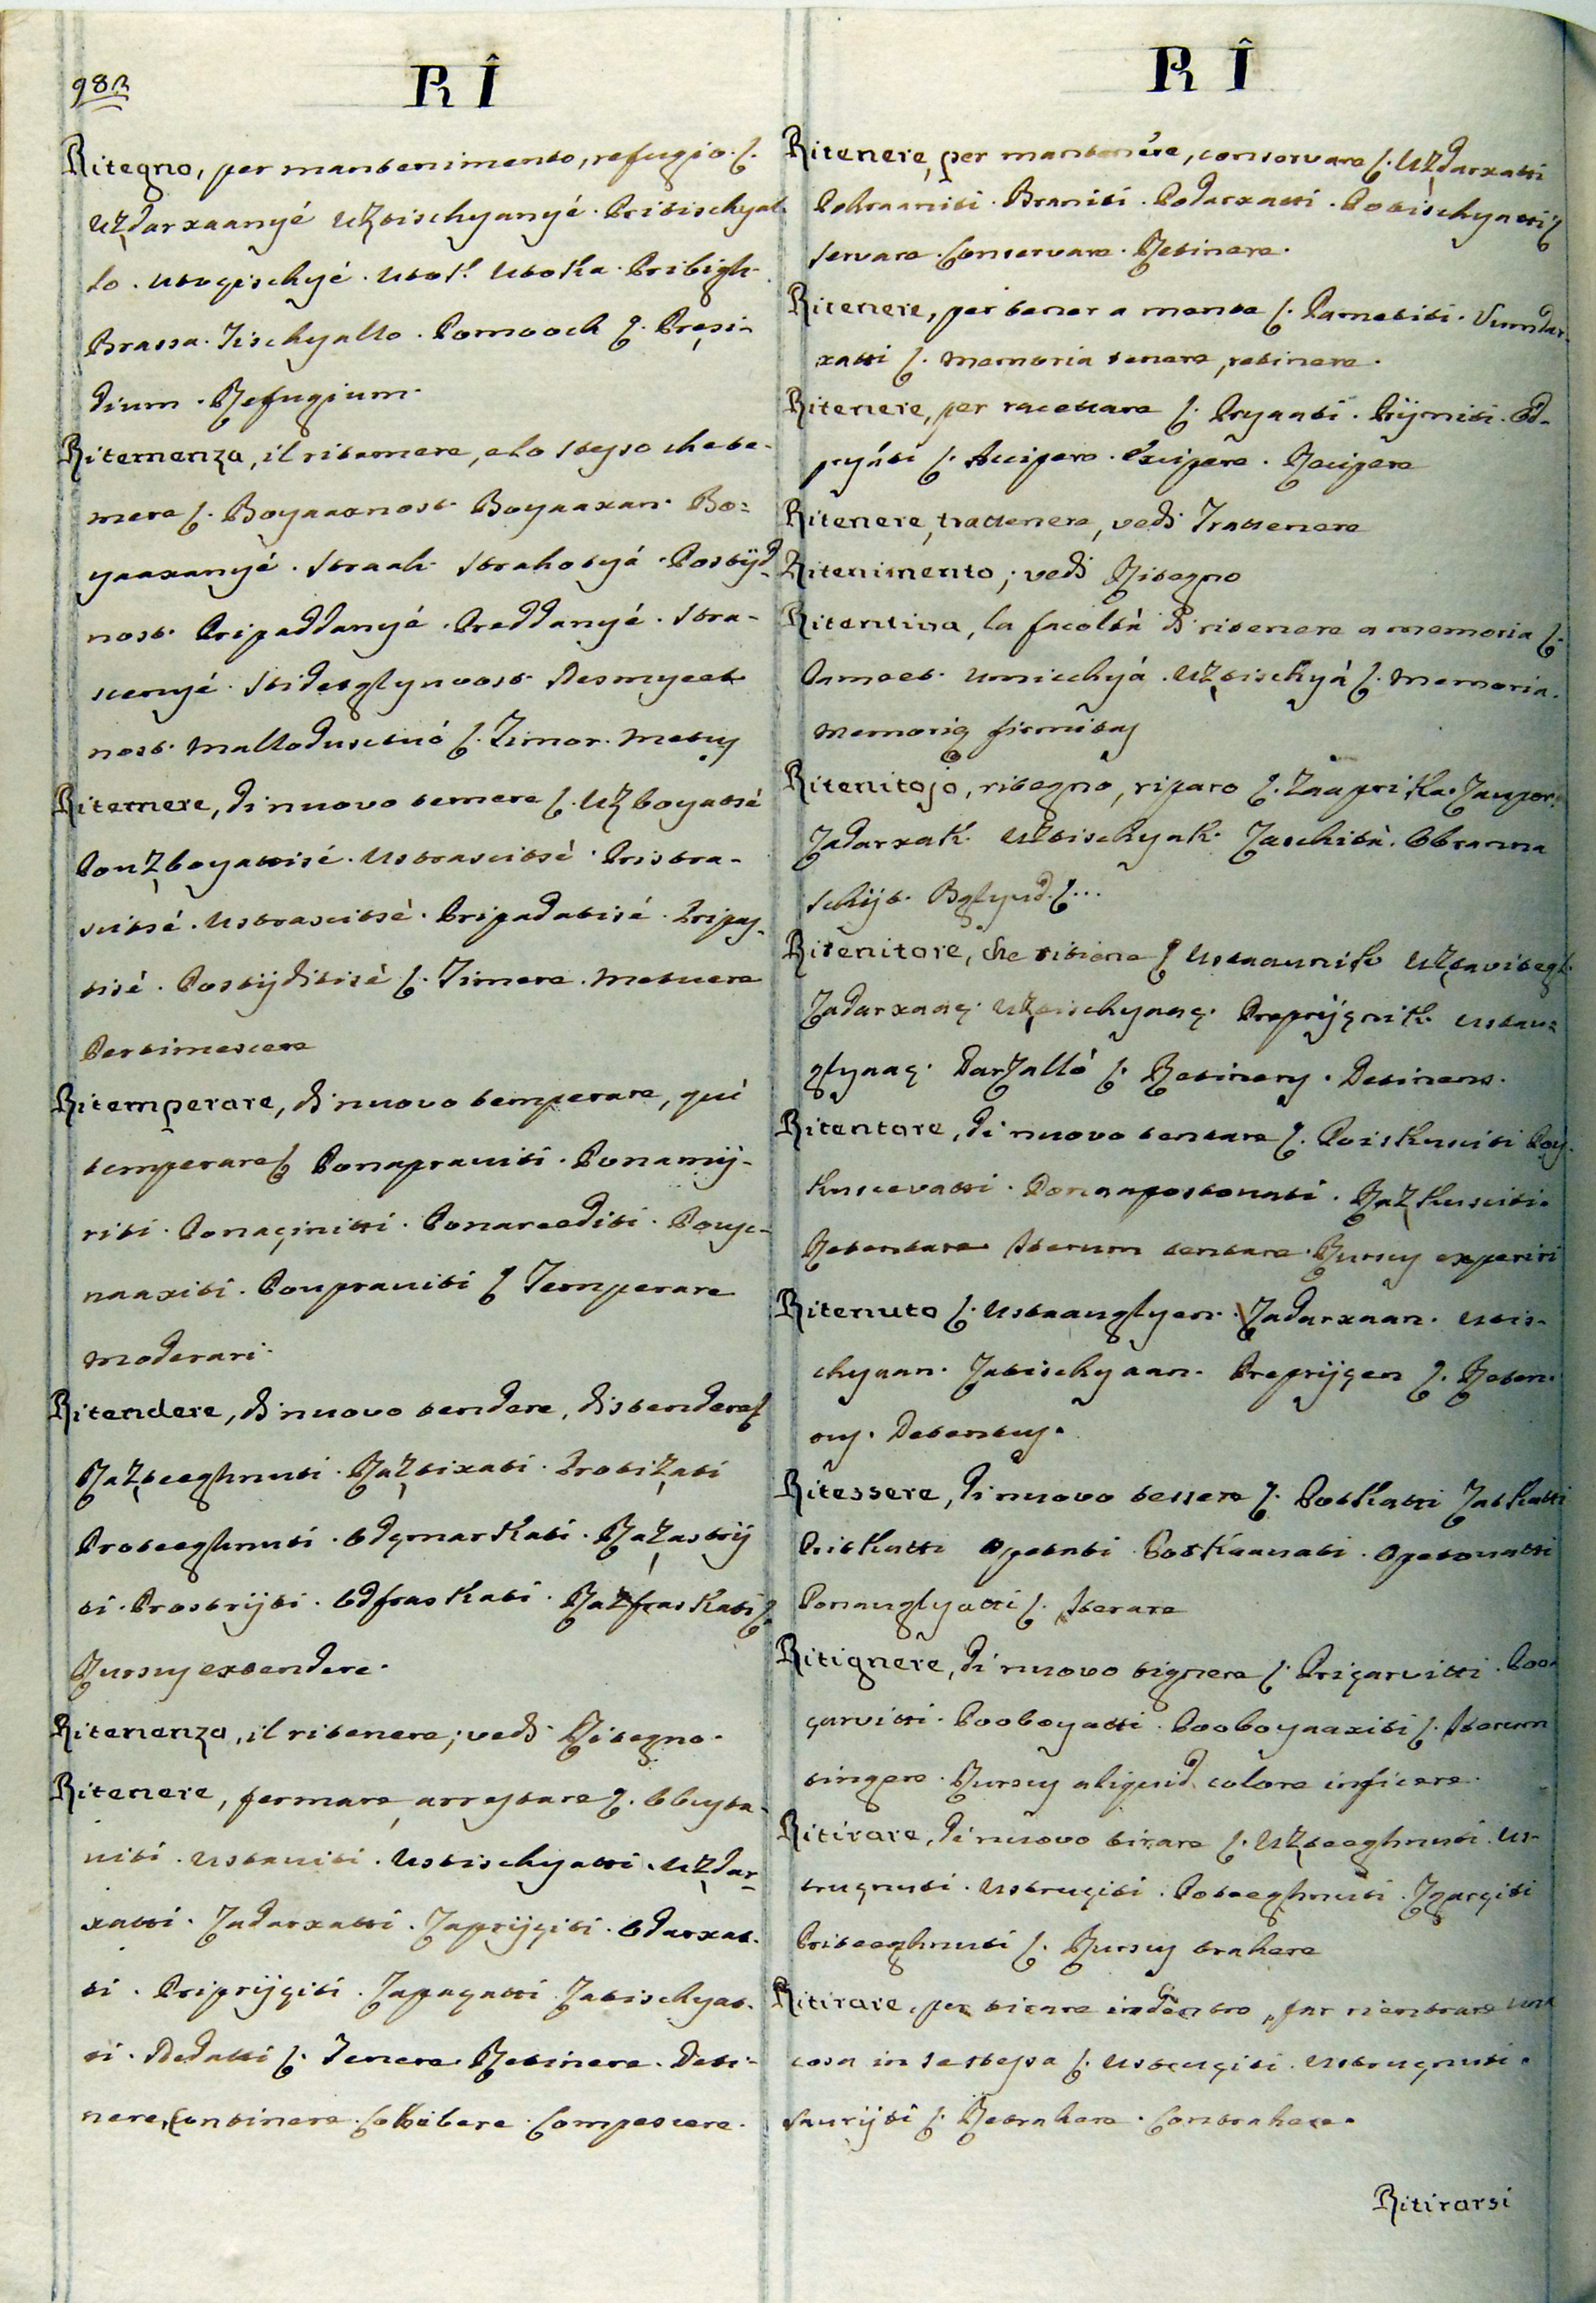 982
RÎ
Ritegno, per mantenimento, refugio. ſ.
Uʒdarxaanyé Uʒtischyanyé. Pritischyal-
lo. Utogischyé. Utok. Utoka. Pribigh.
Brassa. Tischyallo. Pomooch ſ. Presi-
dium. Refugium.
Ritemenza, il ritemere, e lo stesso che te-
mere ſ. Boyaaxnost. Boyaaxan. Bo-
yaaxanyé. Straah. Strahotyá. Postÿd-
nost. Pripaddanyé. Preddanyé. Stra-
scenyé. Stidetglyvost. Desmyeet
nost. Mallodusctuó ſ. Timor. Metus
Ritemere, di nuovo temere ſ. Uʒboyatsé
Pouʒboyattisé. Ustrascitsé. Pristra-
scitsé. Ustrascitsè. Pripadatisé. Pripas-
tisé. Postÿditisè ſ. Timere. Metuere
Pertimescere
Ritemperare, di nuovo temperare, qui
temperare ſ Ponaprauiti. Ponamÿ-
riti. Ponaçinitti. Ponareediti. Pouç-
naaxiti. Pouprauiti ſ Temperare
Moderari.
Ritendere, di nuovo tendere, distendere ſ
Raʒteeghnuti. Raʒtixati. Protiʒati
Proteeghnuti. Odçmarkati. Raʒastrÿ
ti. Prostrÿti. Odfraskati. Raʒfraskati ſ.
Rursus extendere.
Ritenenza, il ritenere; vedi Ritegno.
Ritenere, fermare, arrestare ſ. Obusta-
viti. Ustauiti. Ustischyatti. Uʒdar-
xatti. Zadarxatti. Zaprÿçiti. Odarxat-
ti. Priprÿçiti. Zapaçatti Zatischyat-
ti. Dedatti ſ. Tenere. Retinere. Deti-
nere, Continere. Cohibere. Compescere.
RÎ
Ritenere, per mantenére, conservare ſ. Uʒdarxatti
Pohraaniti. Braniti. Podarxatti. Potischyatti ſ
Servare. Conservare. Retinere.
Ritenere, per tener a mente ſ. Pametiti. Vumdar-
xatti ſ. Memoria tenere, retinere.
Ritenere, per raccettare ſ. Pryaati. Prÿmiti. Od-
pryáti ſ. Accipere. Excipere. Recipere
Ritenere, trattenere, vedi Trattenere
Ritenimento; vedi Ritegno
Ritentiva, la facoltà di ritenere a memoria ſ.
Pamoet. Umicchyá. Uʒtischyá ſ. Memoria.
Memorię firmitas
Ritenitojo, ritegno, riparo ſ. Zaaprika. Zaupor.
Zadarxak. Uʒtischyak. Zaschità. Obranna
Schÿt. Bglyud. ſ...
Ritenitore, che ritiene ſ Ustaaunik Uʒtavitegl.
Zadarxaaç. Uʒtischyaaç. Preprÿçnik. Ustau-
glyaaç. Darʒalló ſ. Retinens. Detinens.
Ritentare, di nuovo tentare ſ. Poiskusciti Pois-
kuscevatti. Ponaapostouati. Raʒkusciti.
Retentare. Iterum tentare. Rursus experiri
Ritenuto ſ. Ustaauglyen. Zadarxaan. Utis-
chyaan. Zatischyaan. Preprÿçen ſ. Reten-
tus. Detentus.
Ritessere, di nuovo tessere ſ. Potkatti Zatkatti
Pritkatti Opetnti Potkaauati. Opetouatti
Ponauglyatti ſ. Iterare
Ritignere, di nuovo tignere ſ. Prigarvitti. Poo-
garvitti. Pooboyatti. Pooboyaaxiti ſ. Iterum
tingere. Rursus aliquid colore inficere.
Ritirare, di nuovo tirare ſ. Uʒteeghnuti. Us-
trugnuti. Ustruçiti. Poteeghnuti. Zgarçiti
Priteeghnuti ſ. Rursus trahere
Ritirare, per tirare indentro, far rientrare una
cosa in se stessa ſ. Ustruçiti. Ustrugnuti.
Saurÿti ſ. Retrahere. Contrahere.
Ritirarsi